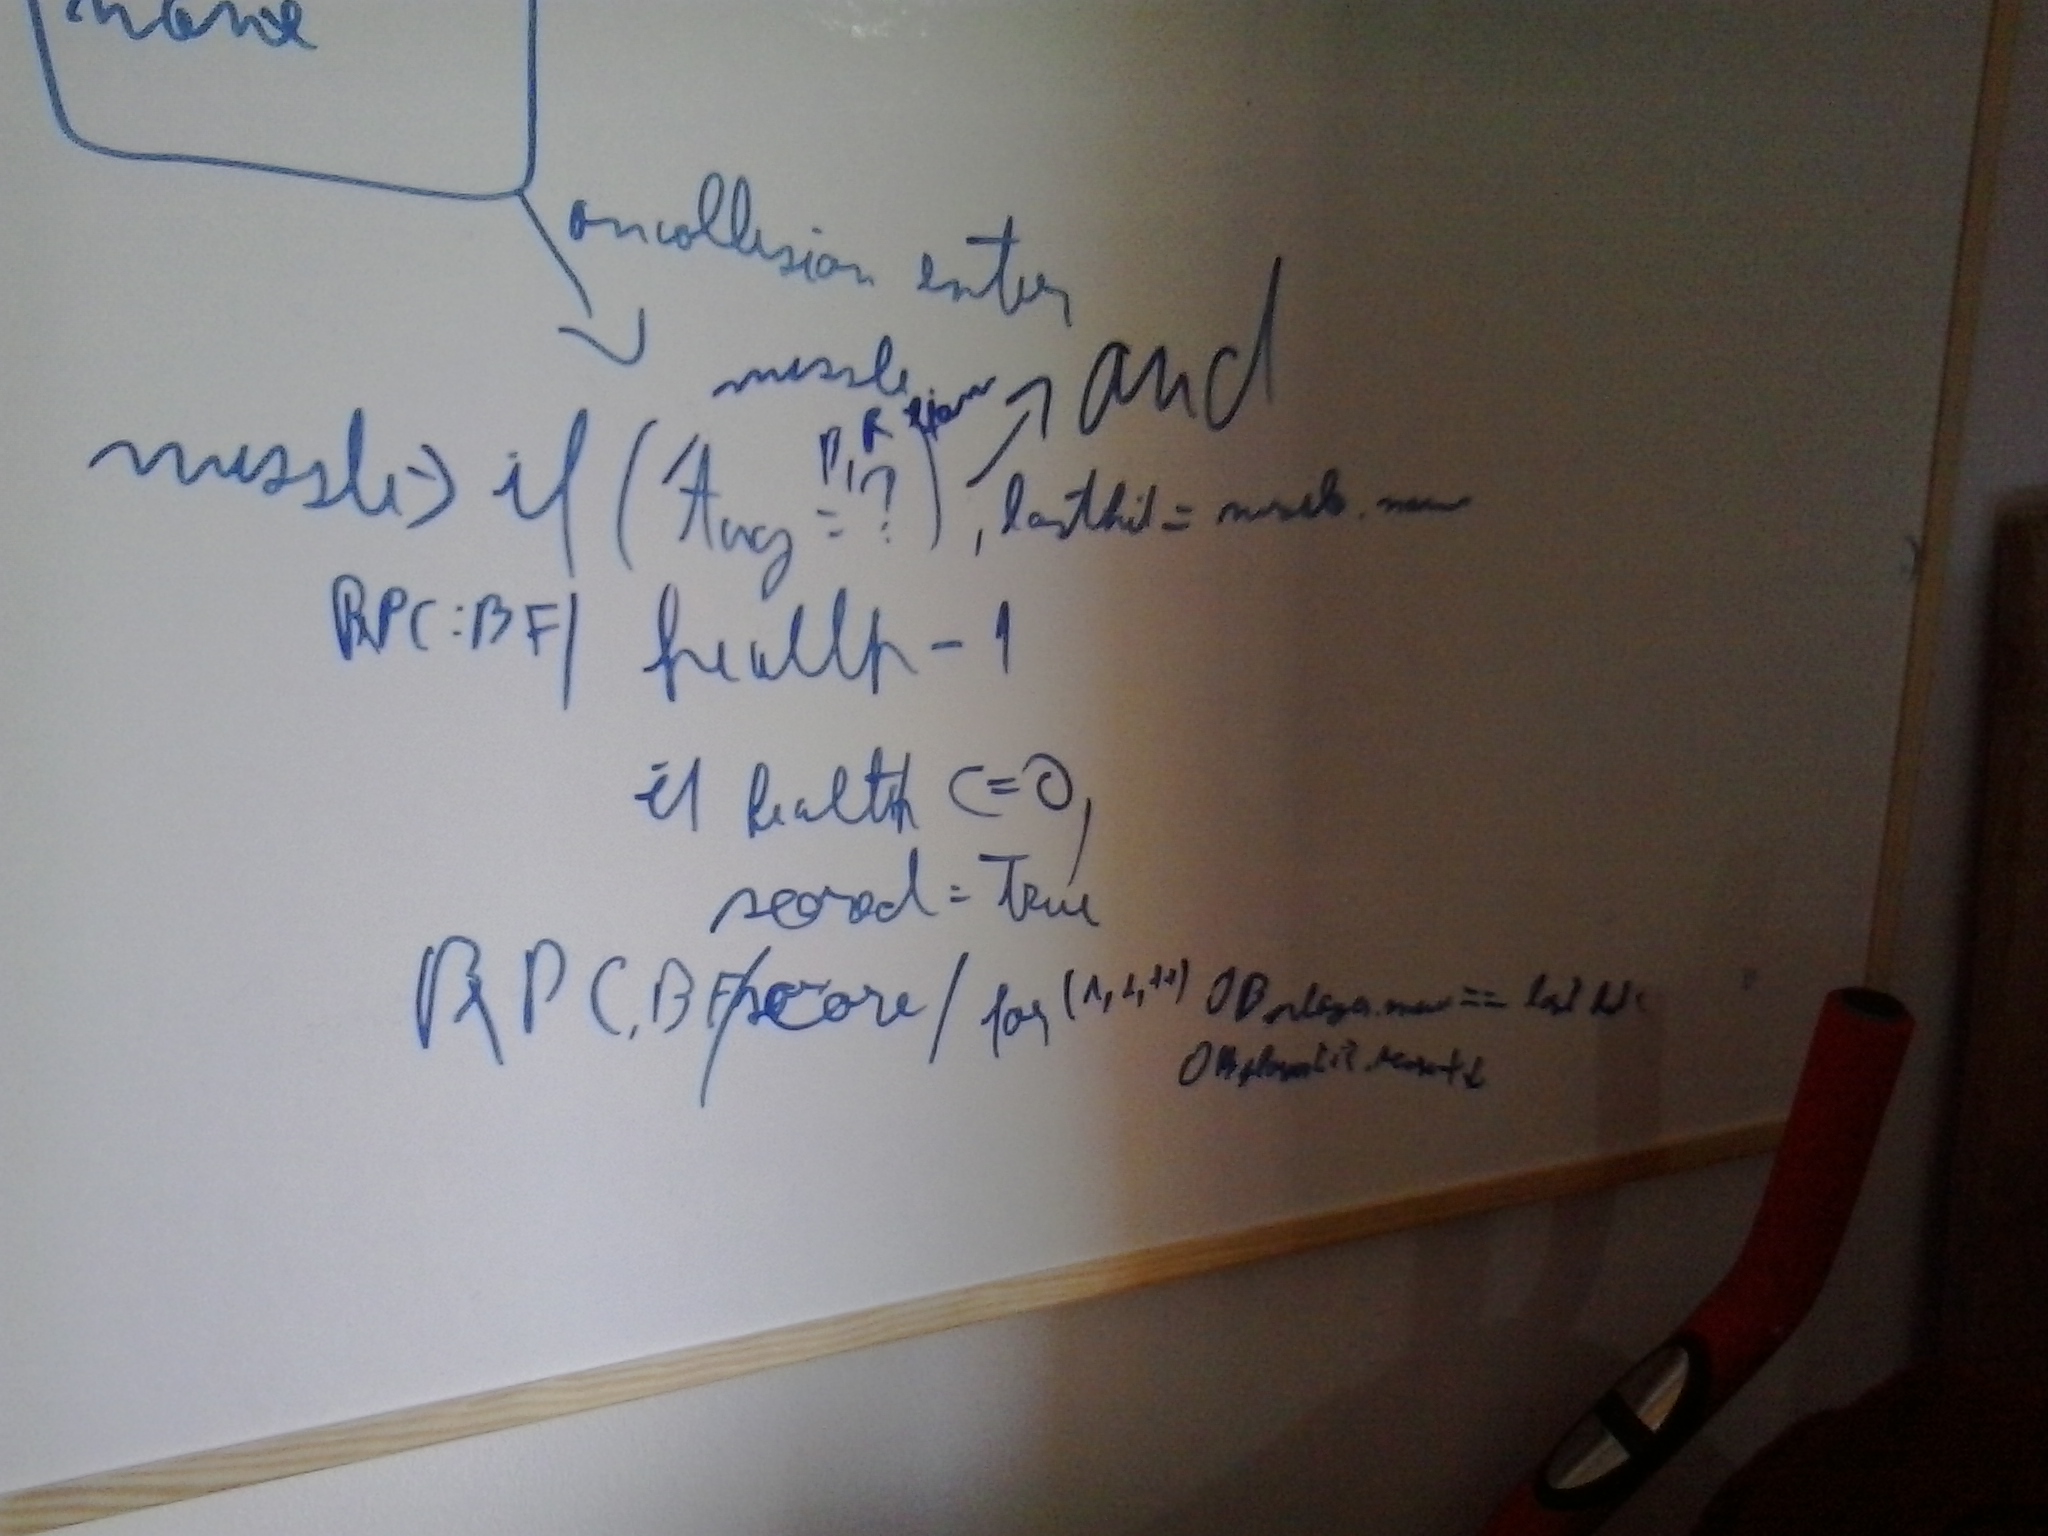 name
oncollision enter
missle and
missle> if (Tag = ?), lasthit = missle.name
RPC:BF/ health - 1
if health <= 0,
scored = True
RPC.BF/score/ for (1, 1, ++) OBplayer.name == last hit